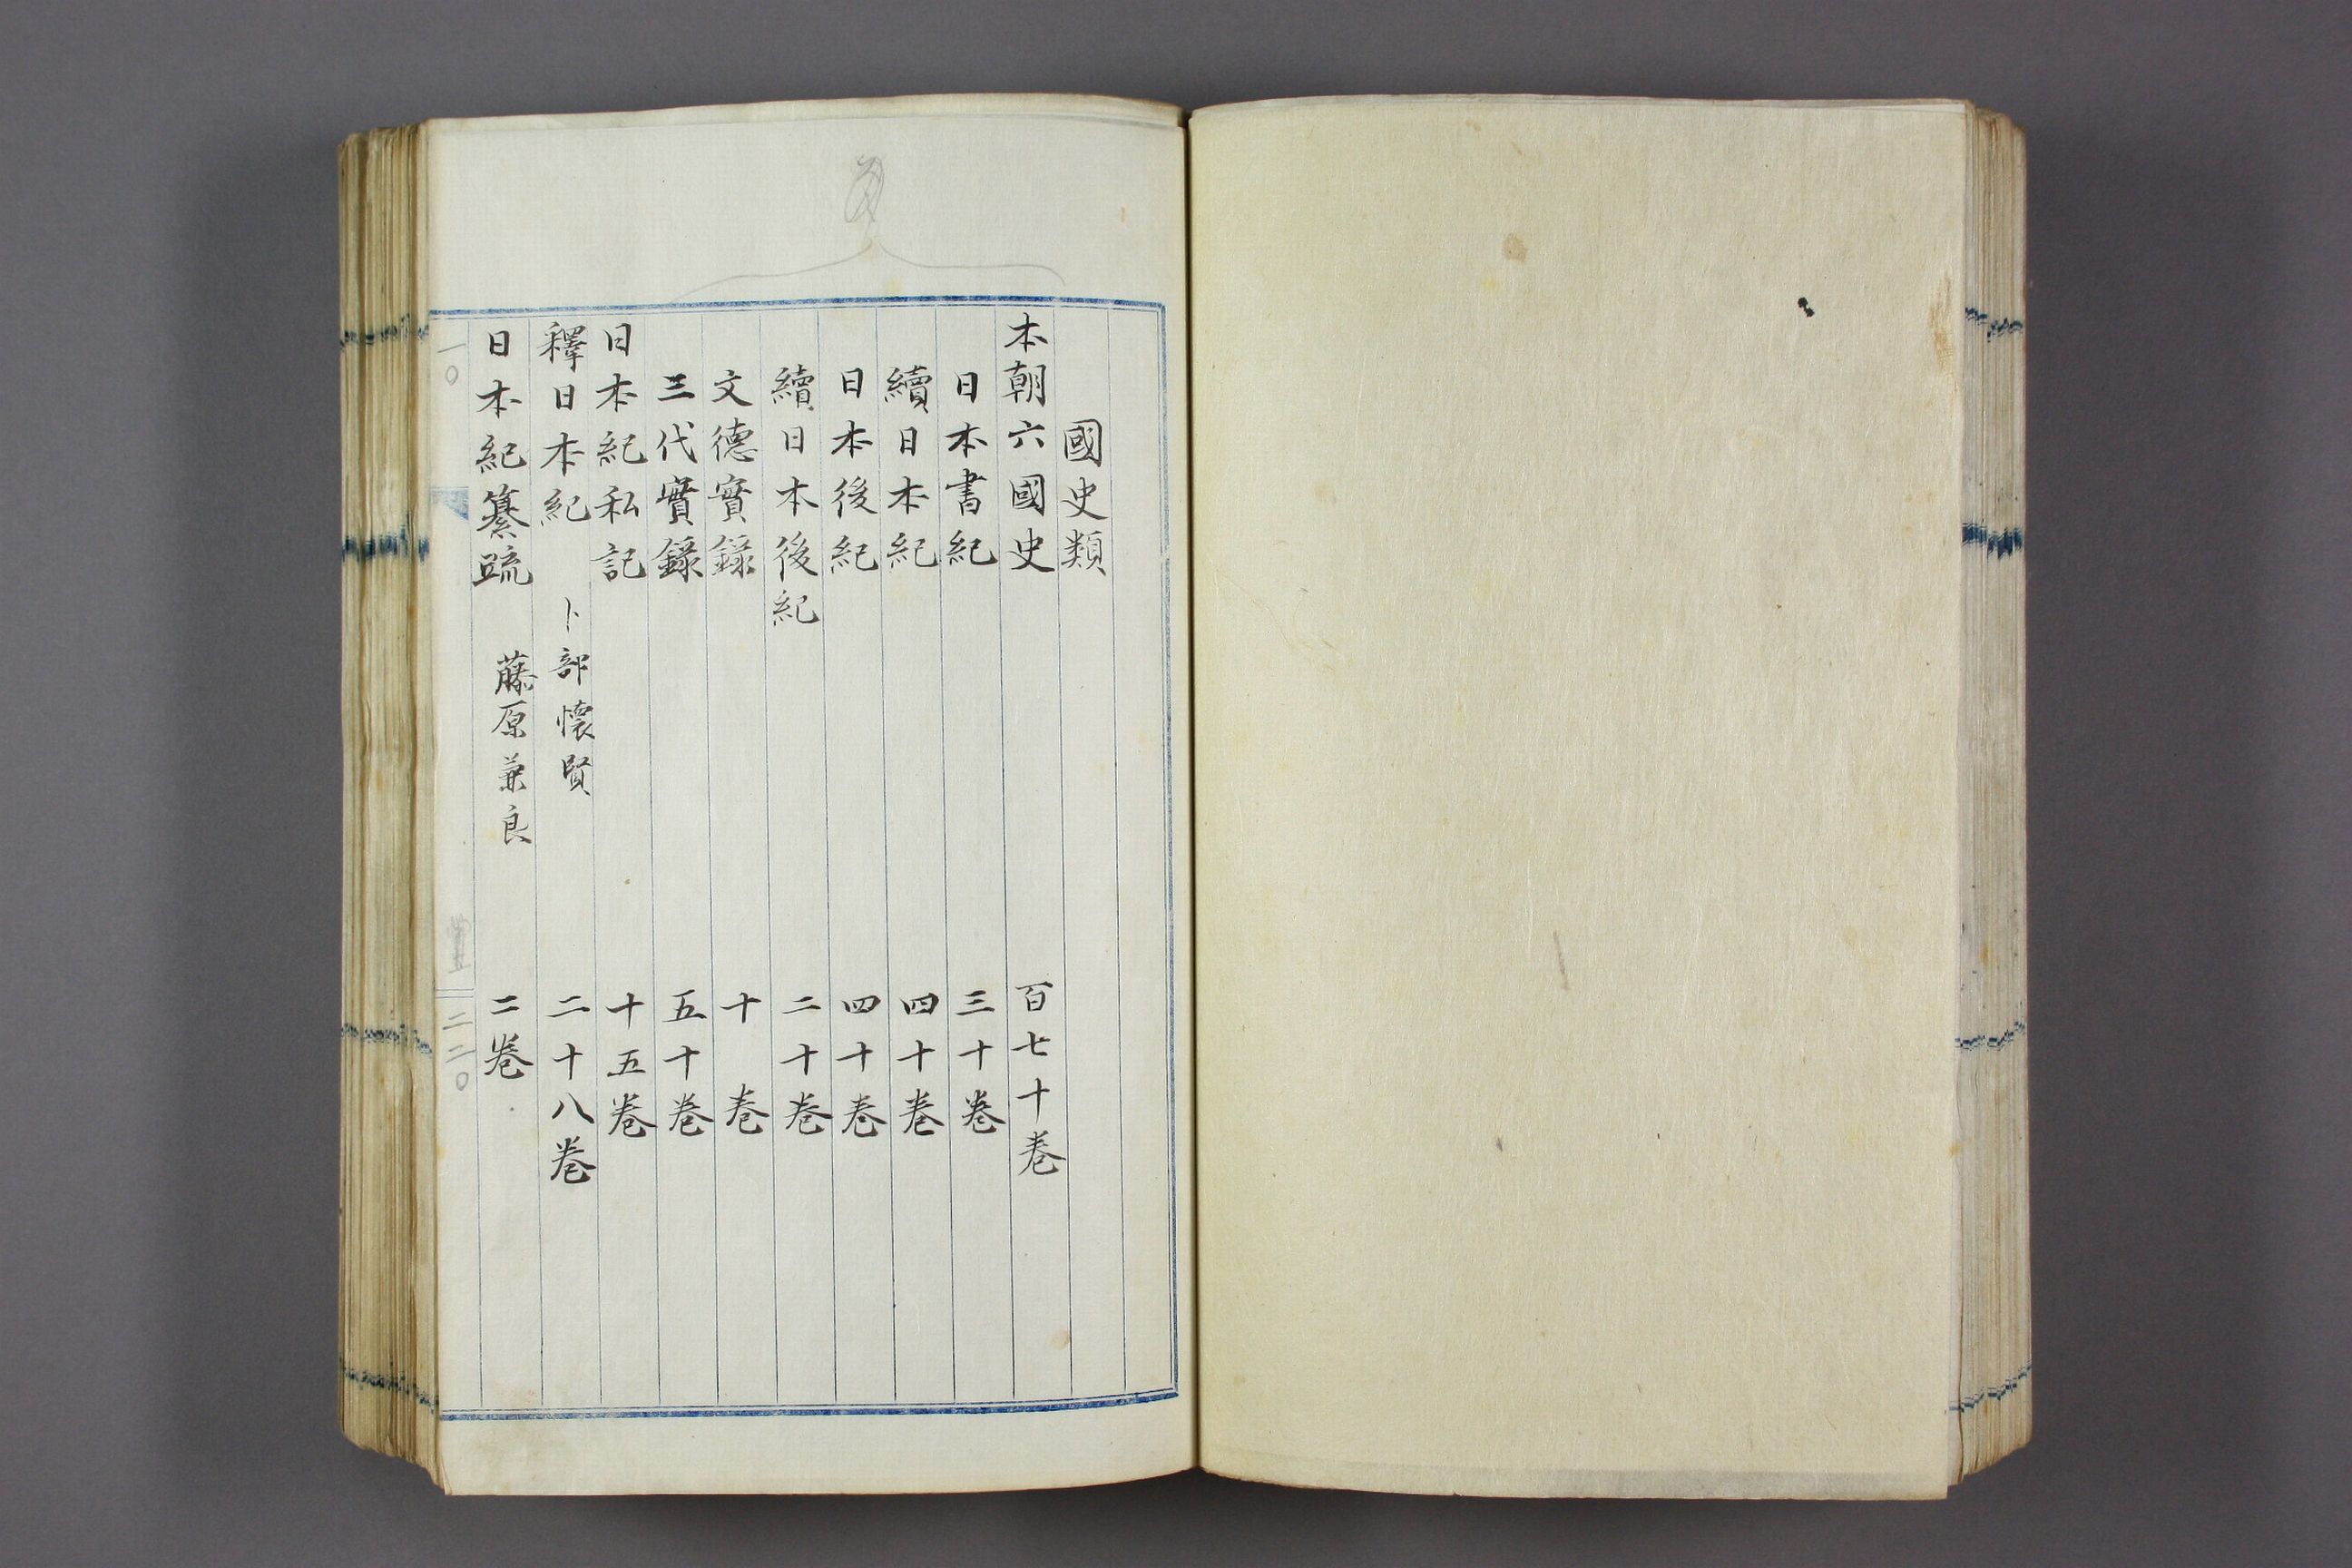 國史類
本朝六國史 百七十卷
日本書紀 三十卷
續日本紀 四十卷
日本後紀 四十卷
續日本後紀 二十卷
文德實錄 十卷
三代實錄 五十卷
日本紀私記 十五卷
釋日本紀 卜部懷賢 二十八卷
日本紀纂疏 藤原兼良 二卷
一〇
二二〇